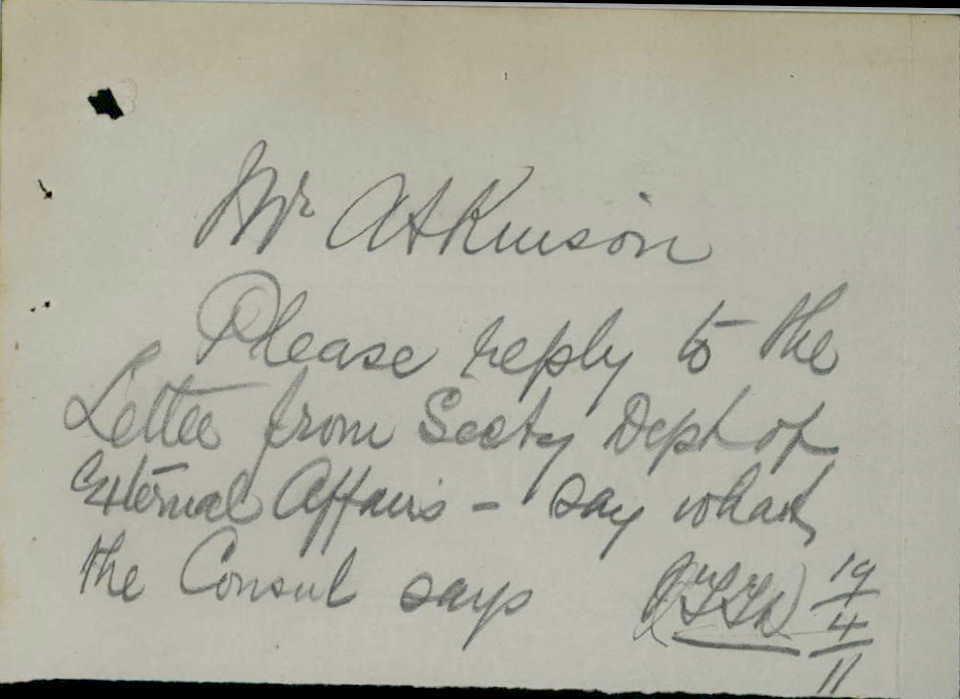 Mr Atkinson
Please reply to the
Letter from Secty Dept of
External Affairs - say what
the Consul says 19
4
11